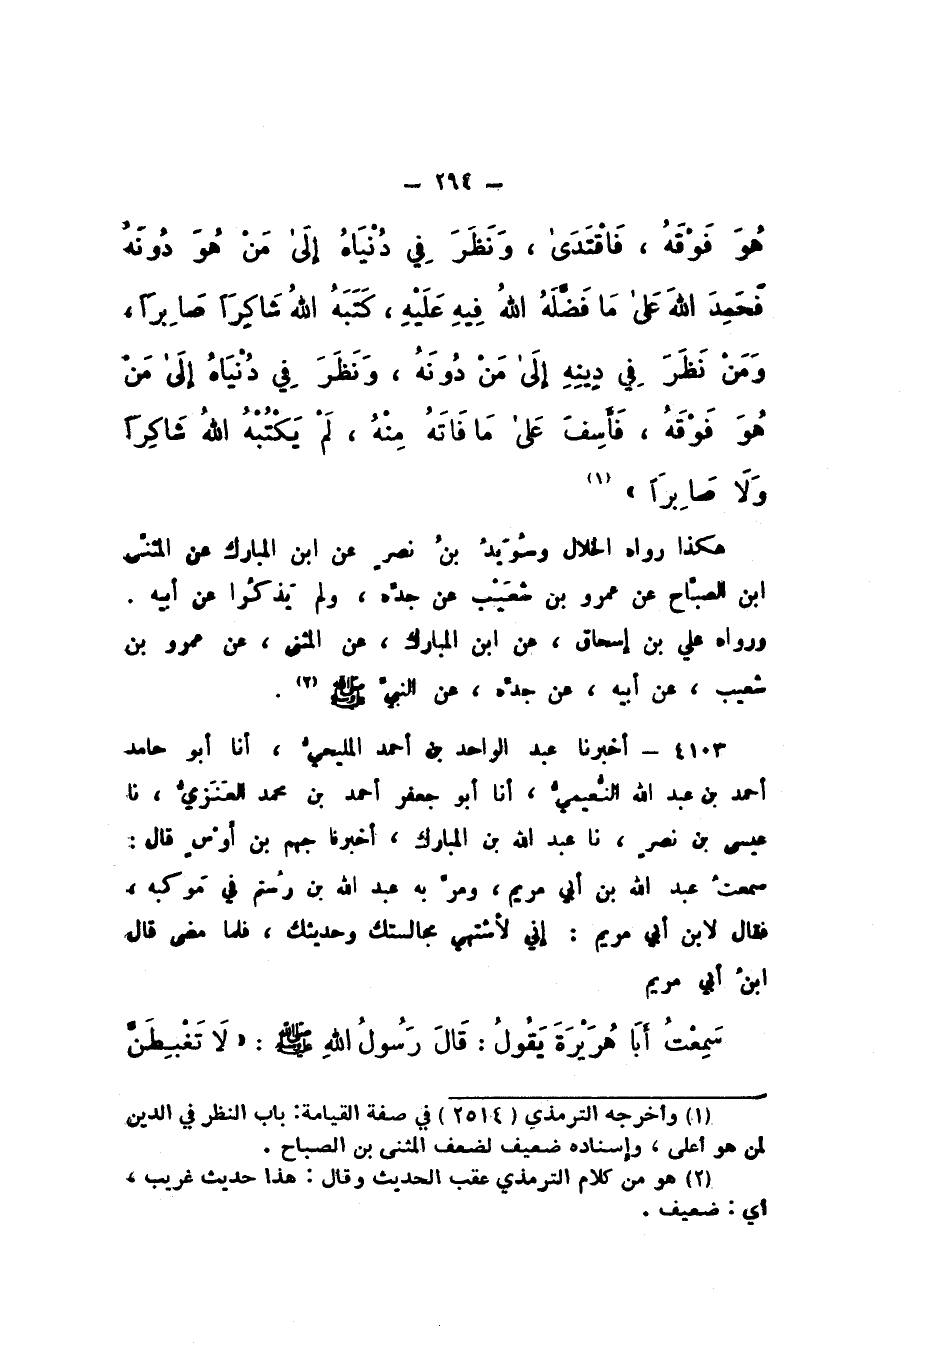 – ٢٩٤ –
هُوَ فَوْقَهُ ، فَاقْتَدَىٰ ، وَنَظَرَ فِي دُنْيَاهُ إِلَىٰ مَنْ هُوَ دُونَهُ
فَحَمِدَ اللهَ عَلَىٰ مَا فَضَّلَهُ اللهُ فِيهِ عَلَيْهِ ، كَتَبَهُ اللهُ شَاكِرَاً صَابِرَاً ،
وَمَنْ نَظَرَ فِي دِينِهِ إِلَىٰ مَنْ دُونَهُ ، وَنَظَرَ فِي دُنْيَاهُ إِلَىٰ مَنْ
هُوَ فَوْقَهُ ، فَأَسِفَ عَلَىٰ مَا فَاتَهُ مِنْهُ ، لَمْ يَكْتُبْهُ اللهُ شَاكِرَاً
وَلَا صَابِرَاً » (١)
هكذا رواه الخلال وسُوَيدُ بنُ نصرٍ عن ابن المبارك عن المثنى
ابن الصبَّاح عن عمرو بن شعَيْب عن جدِّه ، ولم يَذكُرا عن أبيه .
ورواه علي بن إسحاق ، عن ابن المبارك ، عن المثنى ، عن عمرو بن
شعيب ، عن أبيه ، عن جدِّه ، عن النبيِّ ﷺ (٢) .
٤١٠٣ – أخبرنا عبد الواحد بن أحمد المليحيُّ ، أنا أبو حامد
أحمد بن عبد الله النُّعيميُّ ، أنا أبو جعفر أحمد بن محمد العَنَزيُّ ، نا
عيسى بن نصرٍ ، نا عبد الله بن المبارك ، أخبرنا جهم بن أوْسٍ قال :
سمعتُ عبد الله بن أبي مريم ، ومرَّ به عبد الله بن رُستم في مَوكبه ،
فقال لابن أبي مريم : إني لأشتهي مجالستك وحديثك ، فلما مضى قال
ابنُ أبي مريم
سَمِعْتُ أَبَا هُرَيْرَةَ يَقُولُ : قَالَ رَسُولُ اللهِ ﷺ : « لَا تَغْبِطَنَّ
(١) وأخرجه الترمذي ( ٢٥١٤ ) في صفة القيامة: باب النظر في الدين
لمن هو أعلى ، وإسناده ضعيف لضعف المثنى بن الصباح .
(٢) هو من كلام الترمذي عقب الحديث وقال : هذا حديث غريب ،
أي : ضعيف .